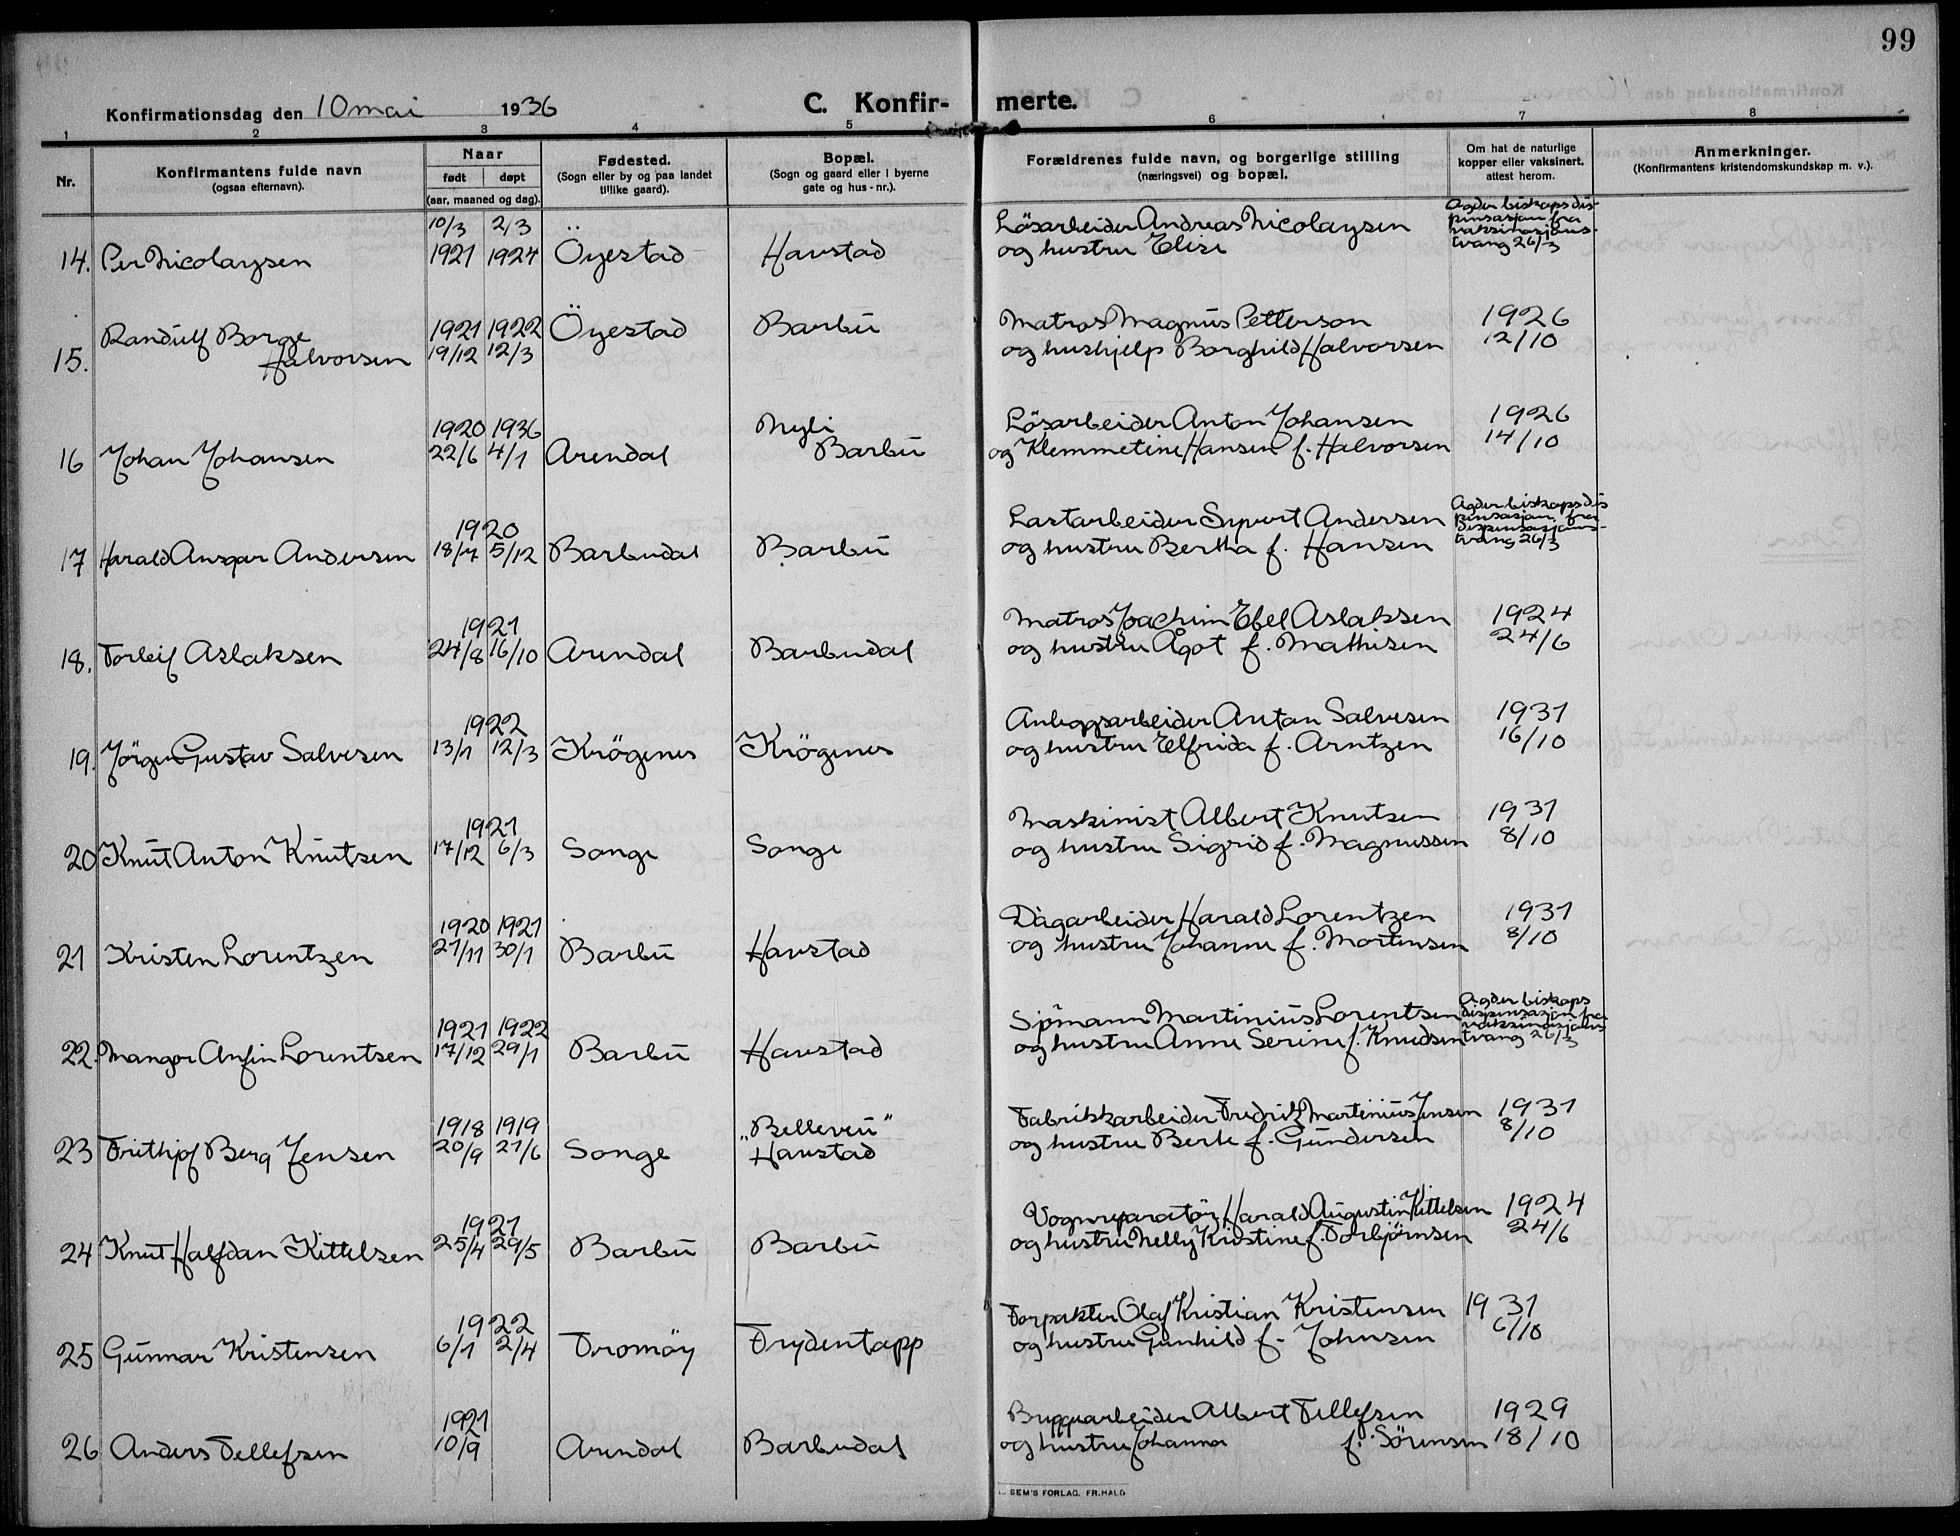 99
Konfirmationsdag den 10 mai 1936 C. Konfir- merte.
1 2 3 4 5 6 7 8
Nr. Konfirmantens fulde navn (ogsaa efternavn). Naar født døpt (aar, maaned og dag). Fødested. (Sogn eller by og paa landet tillike gaard). Bopæl. (Sogn og gaard eller i byerne gate og hus-nr.). Forældrenes fulde navn, og borgerlige stilling (næringsvei) og bopæl. Om hat de naturlige kopper eller vaksinert, attest herom. Anmerkninger. (Konfirmantens kristendomskundskap m. v.).
10/3 2/3 Lösarbeider Andreas Nicolaysen Agder biskaps dispensasjon fra vaksinasjonstvang 26/3
14. Per Nicolaysen 1921 1924 Öyestad Havstad og hustru Elise
Randulf Borge 1921 1922 Öyestad Barbu Matros Magnus Petterson 1926
15. Halvorsen 19/12 12/3 og hushjelp Borghild Halvorsen 12/10
1920 1936 Nyli Lösarbeider Anton Johansen 1926
16 Johan Johansen 22/6 4/1 Arendal Barbu og Klemmetine Hansen f. Halvorsen 14/10
1920 Lastarbeider Syvert Andersen Agder biskaps dispensasjon fra dispensasjonstvang 26/3
17 Harald Ansgar Andersen 18/7 5/12 Barbudal Barbu og hustru Bertha f. Hansen
1921 Matros Joachim Ebel Aslaksen 1924
18. Torleif Aslaksen 24/8 16/10 Arendal Barbudal og hustru Ågot f. Mathisen 24/6
1922 Anleggsarbeider Anton Salvesen 1931
19. Jörgen Gustav Salvesen 13/1 12/3 Krögenes Krögenes og hustru Elfrida f. Arntzen 16/10
1921 Maskinist Albert Knutsen 1931
20 Knut Anton Knutsen 17/12 6/3 Songe Songe og hustru Sigrid f. Magnussen 8/10
1920 1921 Dagarbeider Harald Lorentzen 1931
21 Kristen Lorentzen 27/11 30/1 Barbu Havstad og hustru Johanne f. Mortensen 8/10
1921 1922 Sjömann Martinius Lorentsen Agder biskaps dispensasjon fra vaksinasjonstvang 26/3
22. Mangor Anfin Lorentsen 17/12 29/1 Barbu Havstad og hustru Anne Serine f. Knudsen
1918 1919 „Belleveu" Fabrikkarbeider Fredrik Martinius Jensen 1931
23 Frithjof Berg Jensen 20/9 21/6 Songe Havstad og hustru Berte f. Gundersen 8/10
1921 Vognreparatör Harald Augustin Kittelsen 1924
24 Knut Halfdan Kittelsen 25/4 29/5 Barbu Barbu og hustru Nelly Kristine f. Torbjörnsen 24/6
1922 Forpakter Olaf Kristian Kristensen 1931
25 Gunnar Kristensen 6/1 2/4 Tromöy Frydentopp og hustru Gunhild f. Johnsen 6/10
1921 Bryggearbeider Albert Tellefsen 1929
26 Anders Tellefsen 10/9 Arendal Barbudal og hustru Johanna f. Sörensen 18/10
SEM'S FORLAG, FR.HALD